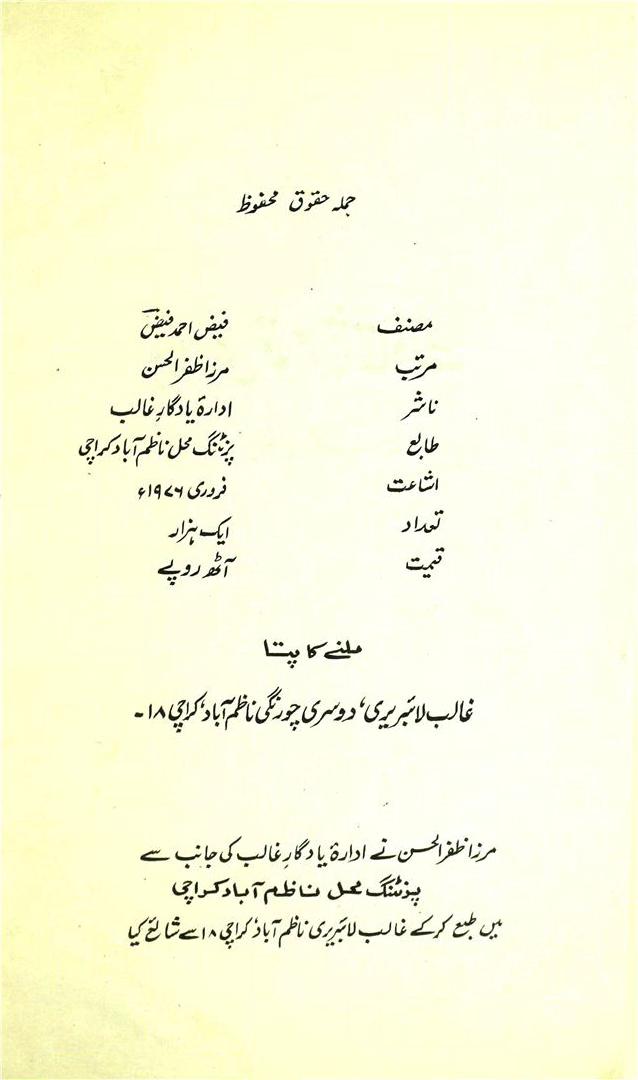 جملہ حقوق محفوظ
مصنف فیض احمد فیضؔ
مرتب مرزا ظفر الحسن
ناشر ادارۂ یادگارِ غالب
طابع پرنٹنگ محل ناظم آباد کراچی
اشاعت فروری ۱۹۷۶ء
تعداد ایک ہزار
قیمت آٹھ روپے
ملنے کا پتا
غالب لائبریری، دوسری چورنگی ناظم آباد، کراچی ۱۸۔
مرزا ظفر الحسن نے ادارۂ یادگارِ غالب کی جانب سے
پرنٹنگ محل ناظم آباد کراچی
میں طبع کر کے غالب لائبریری ناظم آباد، کراچی ۱۸ سے شائع کیا